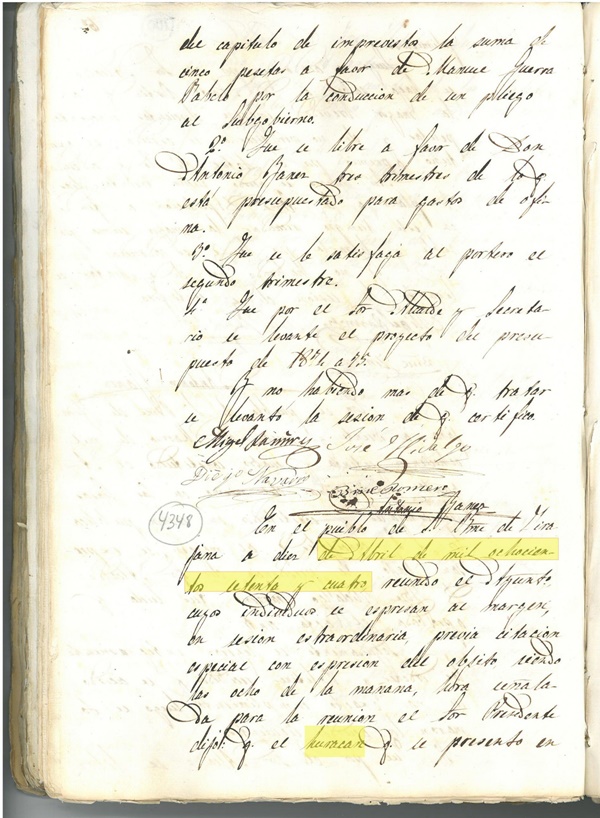 del capitulo de imprevistos la suma de
cinco pesetas a favor de Manuel Guerra
por la conduccion de un pliego
al Subgobierno.
2º Que se libre a favor de Don
Antonio Yanez tres trimestres de lo q.
está presupuestado para gastos de ofi
na.
3º Que se le satisfaga al portero el
segundo trimestre.
4º Que por el Sor Alcalde y Secreta
rio se levante el proyecto del presu
puesto de 1874 a 75.
Y no habiendo mas de q. tratar
se levantó la sesion de q. certifico.
Miguel Ramirez José Hidalgo
Diego Navarro
José Romero
Antonio Yanez
4348
En el pueblo de S. Bme de Tira
jana a diez de Abril de mil ochocien
tos setenta y cuatro reunido el Ayunto
cuyos individuos se espresan al margen,
en sesion estraordinaria, previa citacion
especial con espresion del objeto siendo
las ocho de la mañana, hora señala
da para la reunion el Sor Presidente
dijo: q. el huracan q. se presento en